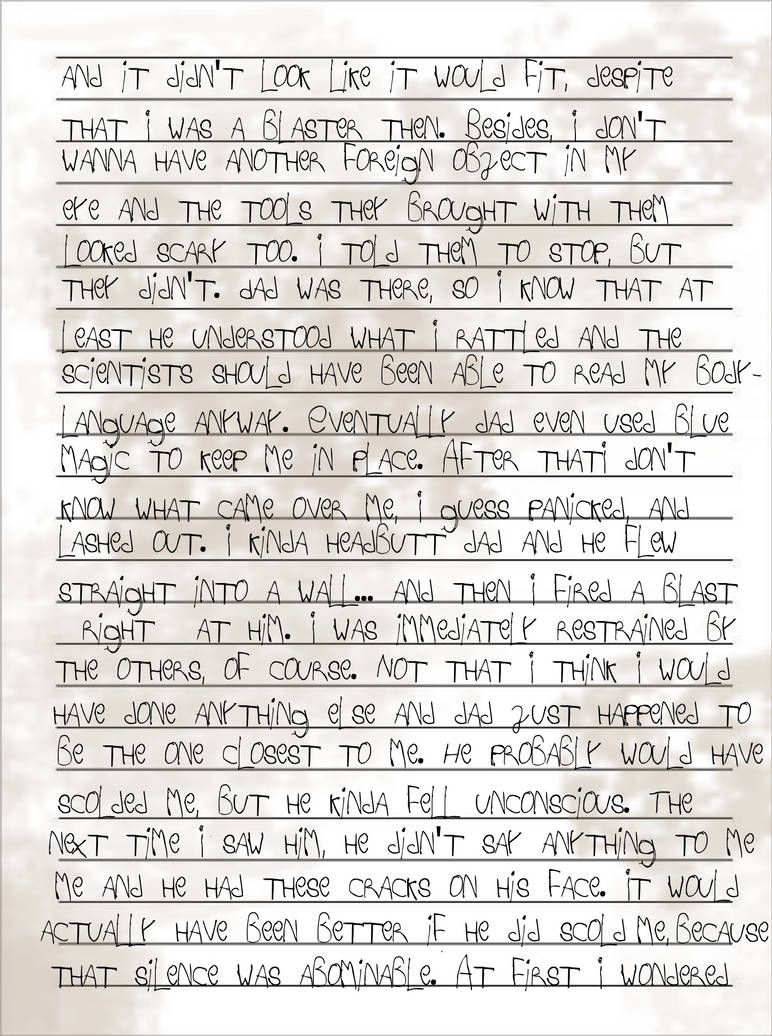 AND iT didN'T LOOK LiKe iT WOULd FiT, desPiTE
THAT i WAS A BLASTER THEN. Besides, i dON'T
WANNA HAVe ANOTHER FOReigN OBJECT iN MY
eYe AND THE TOOLS THEY BROUgHT WiTH THEM
LOOKed SCARY TOO. i TOLd THEM TO STOP, BUT
THEY didN'T. dAd WAS THERE, SO i KNOW THAT AT
LEAST HE UNdeRSTOOd WHAT i RATTLed ANd THE
SCiENTiSTS SHOULd HAVE BEEN ABLE TO READ MY BOdY-
LANgUAge ANYWAY. EVENTUALLY dAd eVEN USed BLUe
MAgiC TO KeeP Me iN PLACE. AFTER THATi dON'T
KNOW WHAT CAMe OVER Me, i gUESS PANiCKed, ANd
LASHed OUT. i KiNdA HEAdBUTT dAd ANd HE FLEW
STRAigHT iNTO A WALL... ANd THEN i FiRed A BLAST
RigHT AT HiM. i WAS iMMediATELY RESTRAiNed BY
THE OTHERS, OF COURSe. NOT THAT i THiNK i WOULd
HAVE dONE ANYTHiNg eLSe ANd dAd JUST HAPPENed TO
Be THE ONE CLOSEST TO Me. HE PROBABLY WOULd HAVE
SCOLded Me, BUT HE KiNdA FeLL UNCONSCiOUS. THE
NexT TiMe i SAW HiM, HE didN'T SAY ANYTHiNg TO Me
Me ANd HE HAd THESE CRACKS ON HiS FACe. iT WOULd
ACTUALLY HAVE BEEN BETTER iF HE did SCOLd Me, BeCAUSe
THAT SiLENCE WAS ABOMiNABLe. AT FiRST i WONdeRed